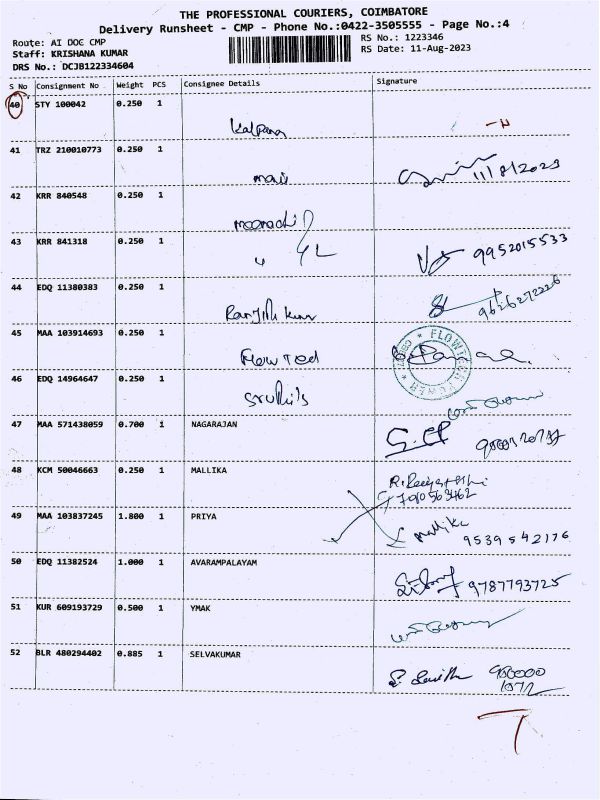 THE PROFESSIONAL COURIERS, COIMBATORE
Delivery Runsheet - CMP - Phone No.:0422-3505555 - Page No.:4
Route: AI DOC CMP
RS No.: 1223346
Staff: KRISHANA KUMAR
RS Date: 11-Aug-2023
DRS No.: DCJB122334604
S No Consignment No Weight PCS Consignee Details Signature
40 STY 100042 0.250 1
Kalpana
41 TRZ 210010773 0.250 1
mani 11/8/2023
42 KRR 840548 0.250 1
43 KRR 841318 0.250 1
9952015533
44 EDQ 11380383 0.250 1
Ranjith kumar 9626272226
45 MAA 103914693 0.250 1
Flow Tech
46 EDQ 14964647 0.250 1
47 MAA 571438059 0.700 1 NAGARAJAN
48 KCM 50046663 0.250 1 MALLIKA
49 MAA 103837245 1.800 1 PRIYA
mallika
9539542176
50 EDQ 11382524 1.000 1 AVARAMPALAYAM
9787793725
51 KUR 609193729 0.500 1 YMAK
52 BLR 480294402 0.885 1 SELVAKUMAR